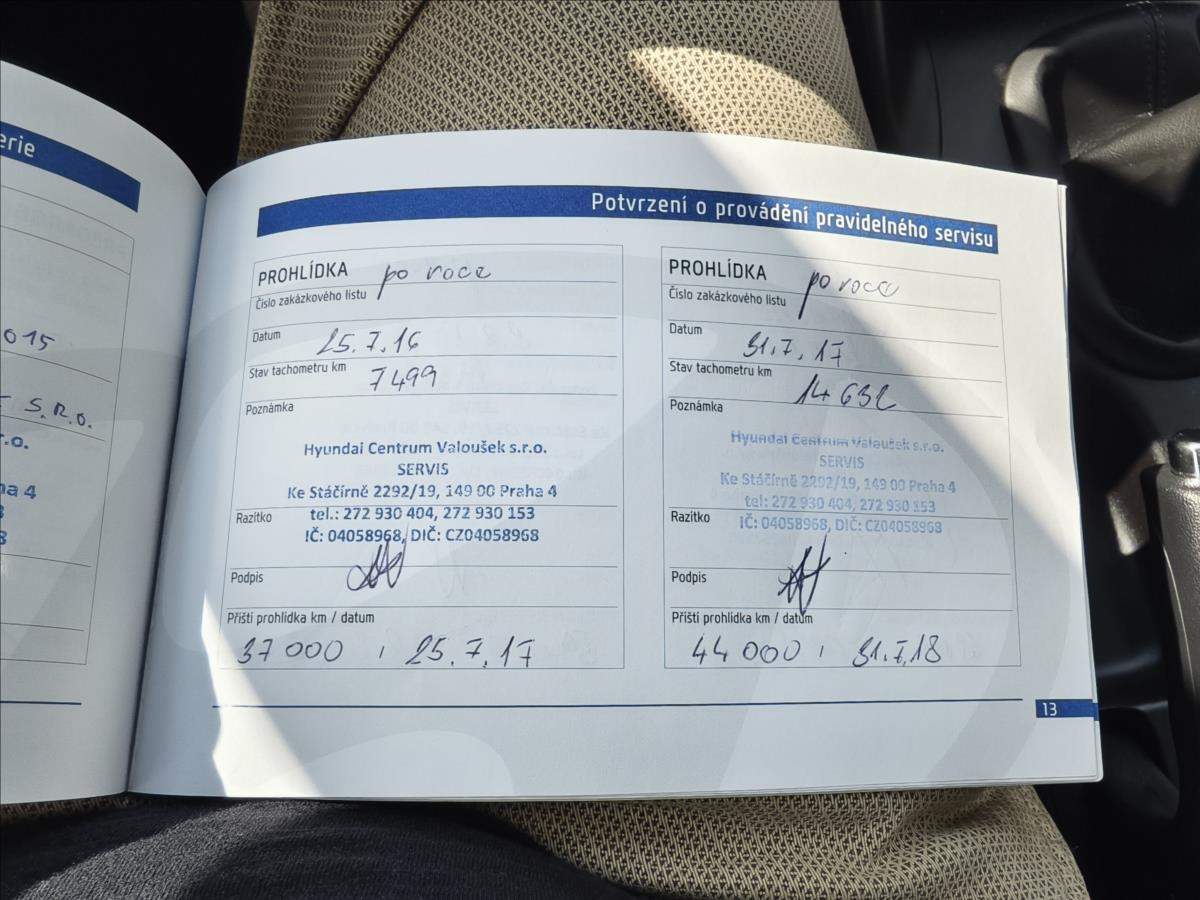 erie
015
S.R.O.
r.o.
ha 4
3
8
Potvrzení o provádění pravidelného servisu
PROHLÍDKA po roce
Číslo zakázkového listu
Datum 25.7.16
Stav tachometru km 7499
Poznámka
Hyundai Centrum Valoušek s.r.o.
SERVIS
Ke Stáčírně 2292/19, 149 00 Praha 4
Razítko tel.: 272 930 404, 272 930 153
IČ: 04058968, DIČ: CZ04058968
Podpis
Příští prohlídka km / datum
37 000 , 25.7.17
PROHLÍDKA po roce
Číslo zakázkového listu
Datum 31.7.17
Stav tachometru km 14 632
Poznámka
Hyundai Centrum Valoušek s.r.o.
SERVIS
Ke Stáčírně 2292/19, 149 00 Praha 4
tel.: 272 930 404, 272 930 153
Razítko IČ: 04058968, DIČ: CZ04058968
Podpis
Příští prohlídka km / datum
44 000 , 31.7.18
13